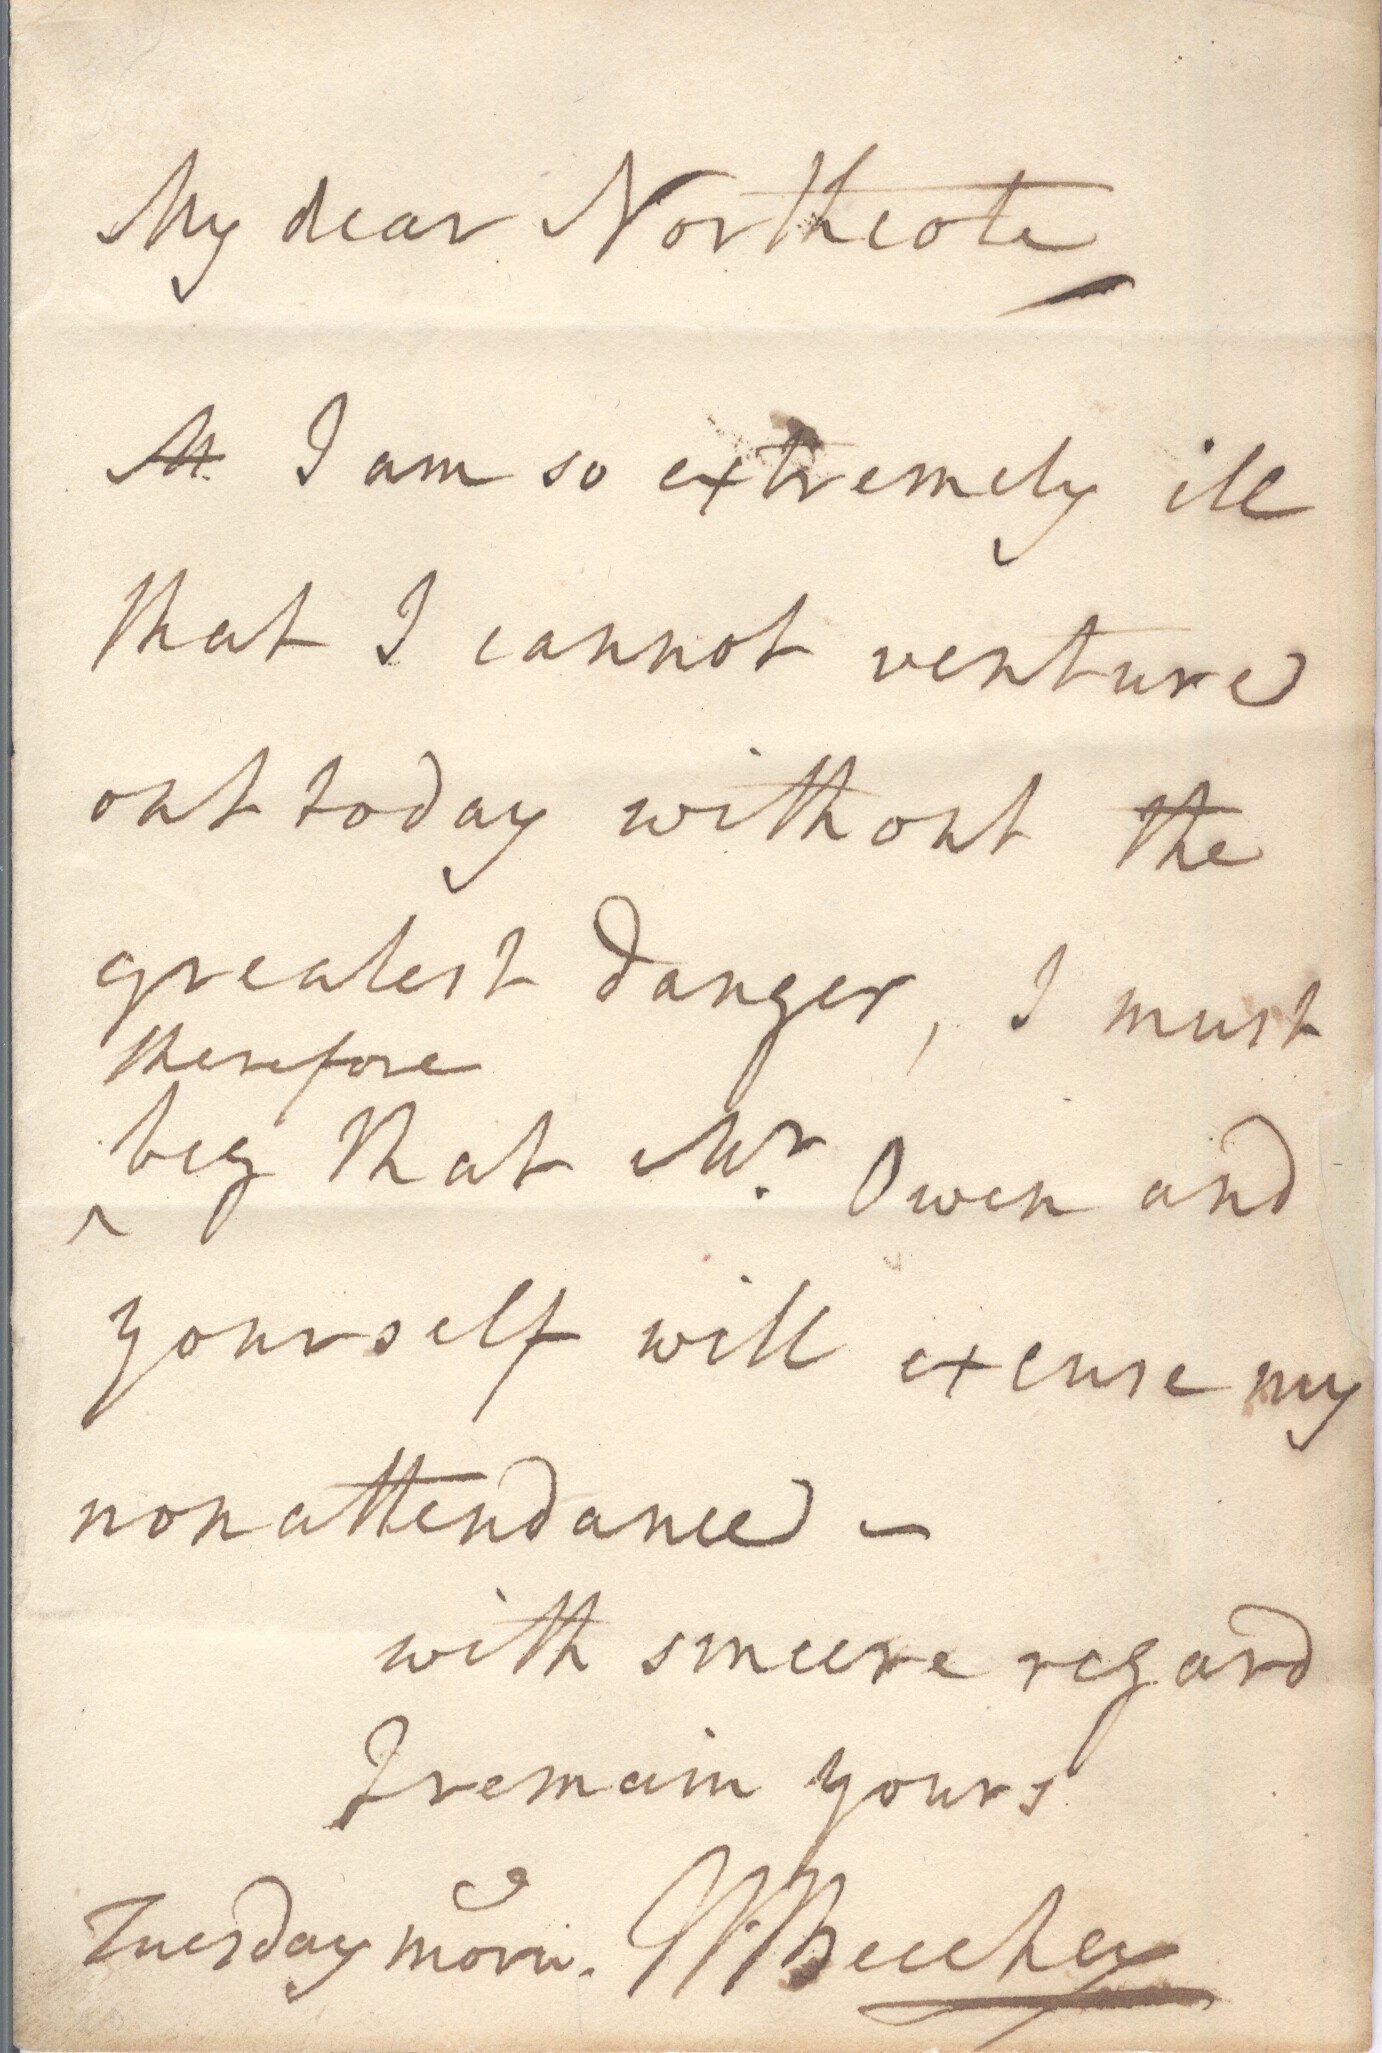 My dear Northcote,
I am so extremely ill
that I cannot venture
out today without the
greatest danger, I must
therefore
^ beg that Mr. Owen and
yourself will excuse my
nonattendance –
with sincere regard
I remain yours
Tuesday morng. W. Beechey